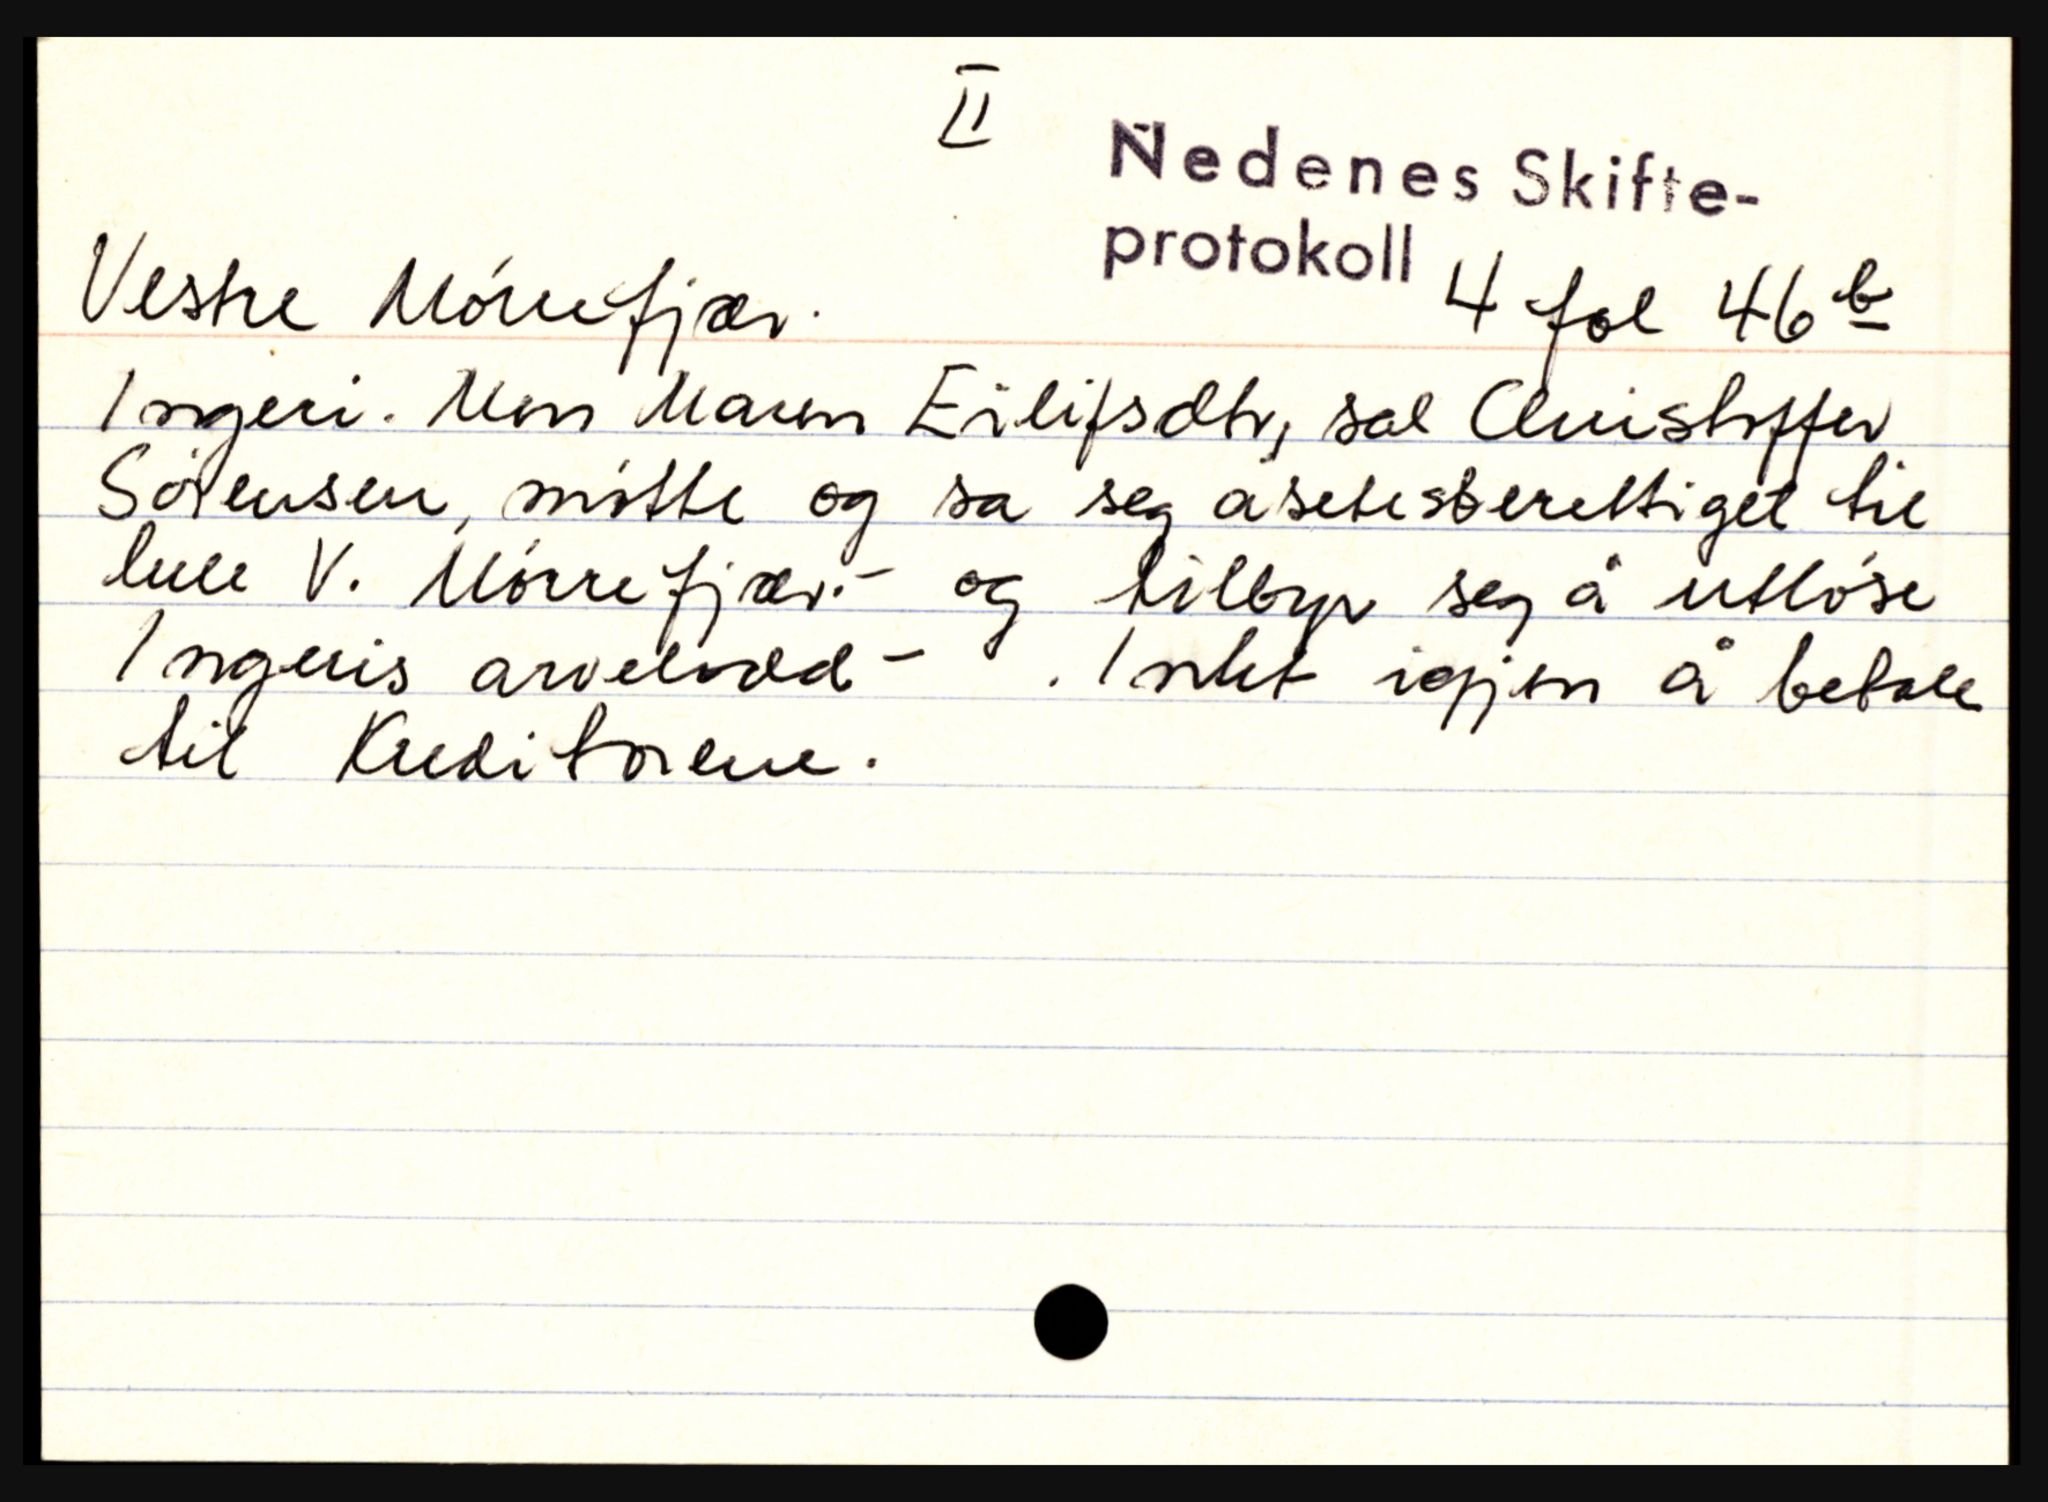 II
Nedenes Skifte-
protokoll 4 fol 46b
Vestre Mórrefjær.
Ingeri. Men Maren Eilifsdtr, sal Christoffer
Sórensen, mótte og sa seg åsetesberettiget til
hele V. Mórrefjær.- og tilbyr seg å utlóse
Ingeris arvelodd - . Intet igjen å betale
til Kreditorene.